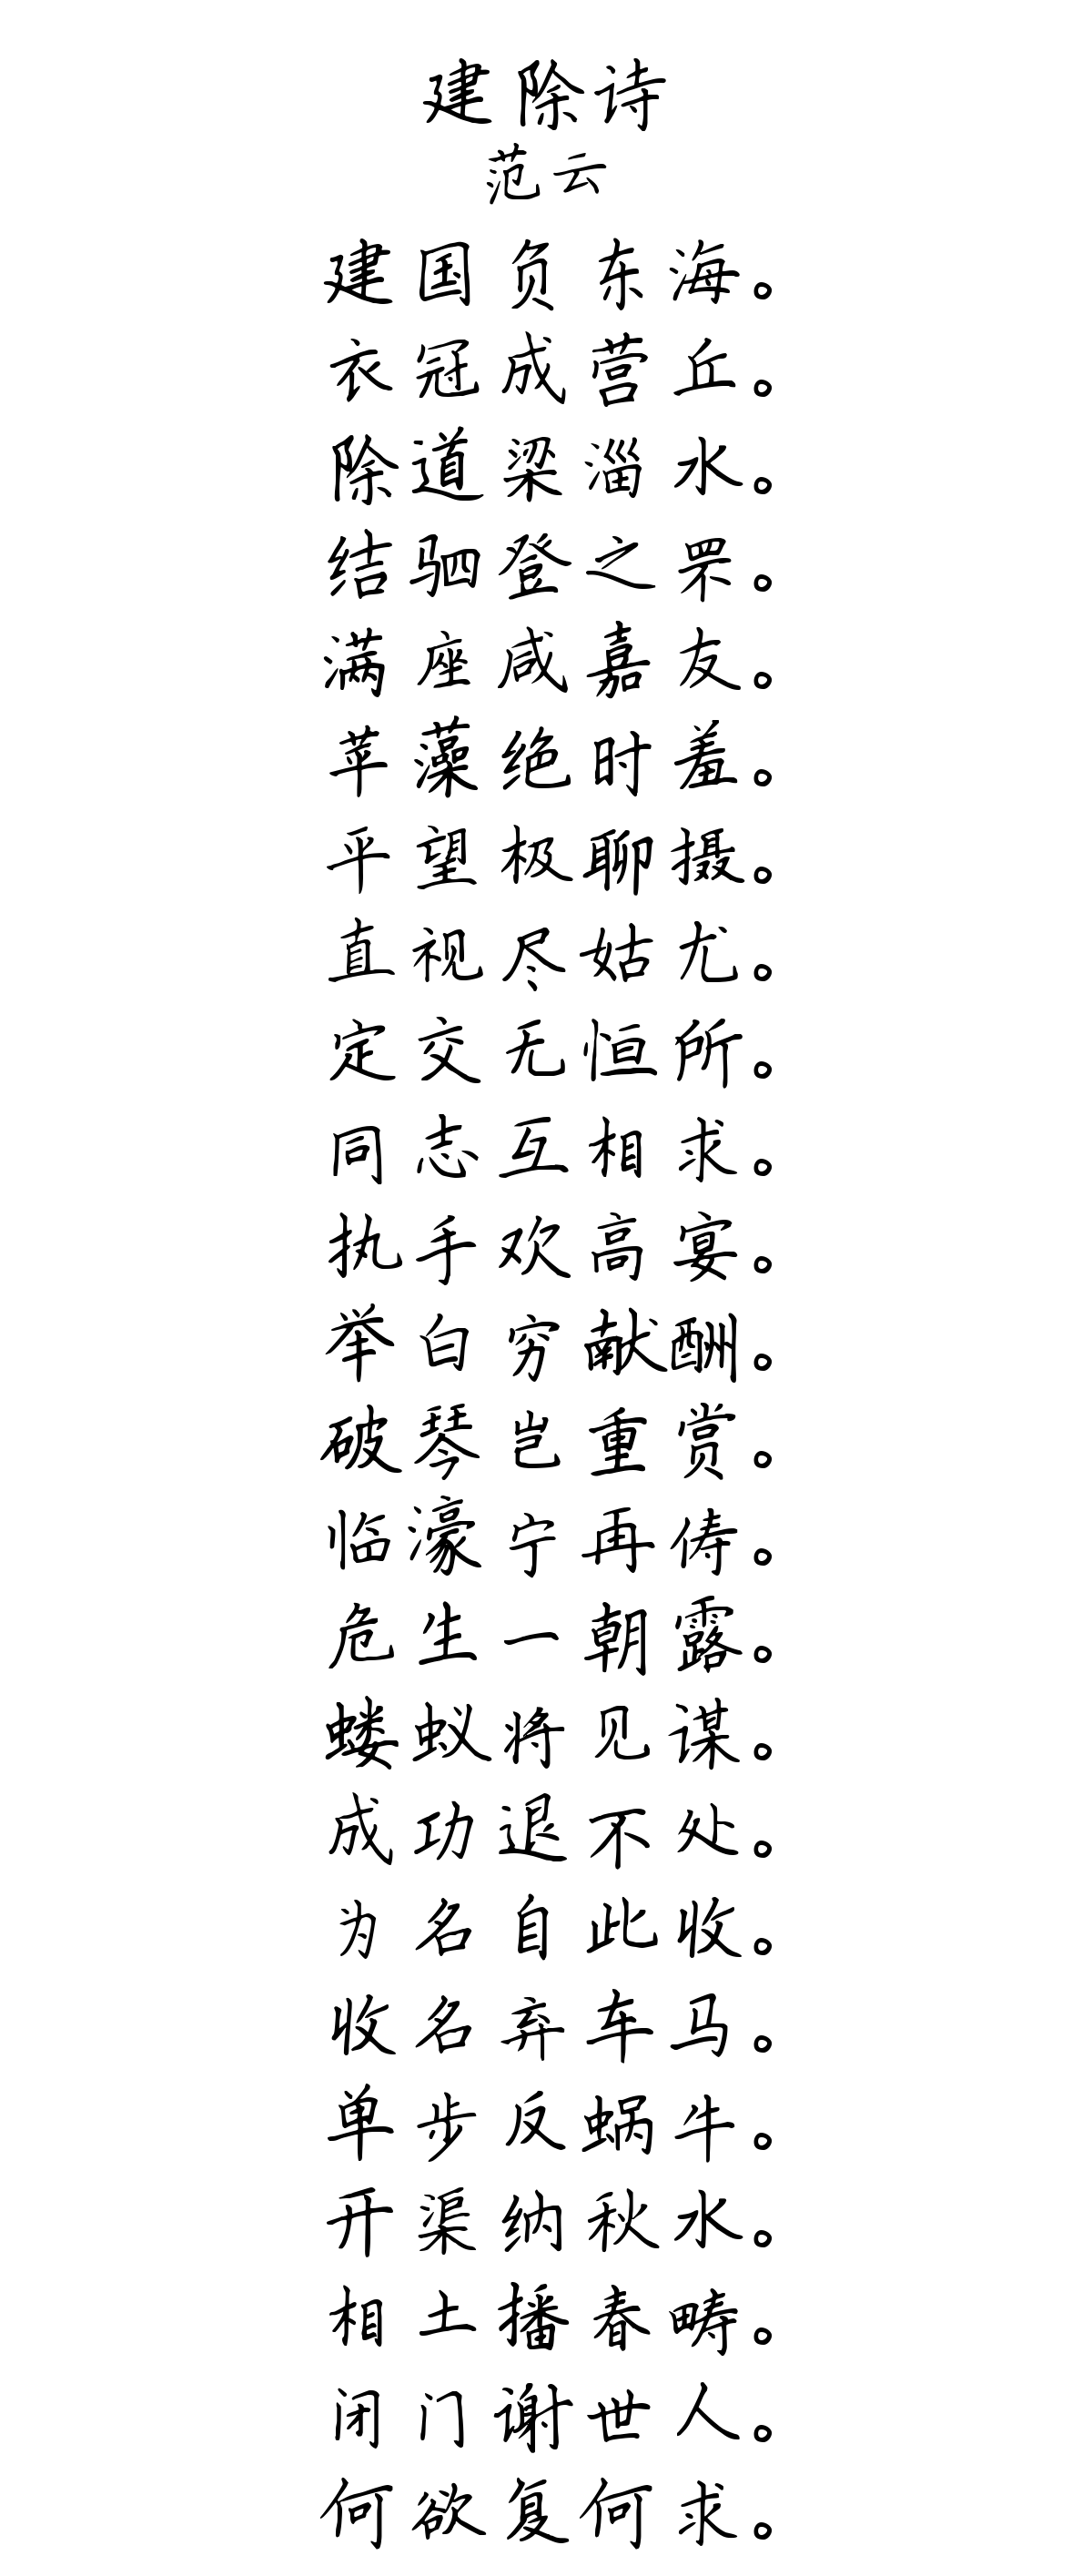 建除诗
范云
建国负东海。
衣冠成营丘。
除道梁淄水。
结驷登之罘。
满座咸嘉友。
苹藻绝时羞。
平望极聊摄。
直视尽姑尤。
定交无恒所。
同志互相求。
执手欢高宴。
举白穷献酬。
破琴岂重赏。
临濠宁再俦。
危生一朝露。
蝼蚁将见谋。
成功退不处。
为名自此收。
收名弃车马。
单步反蜗牛。
开渠纳秋水。
相土播春畴。
闭门谢世人。
何欲复何求。